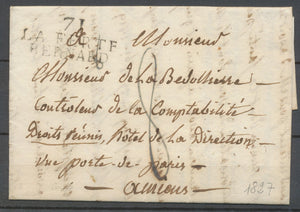 71
LA FERTE
BERNARD
A Monsieur
Monsieur de la Bedollierre
Controleur de la Comptabilité
Droits réunis, hôtel de la Direction
rue porte de paris
amiens
1827